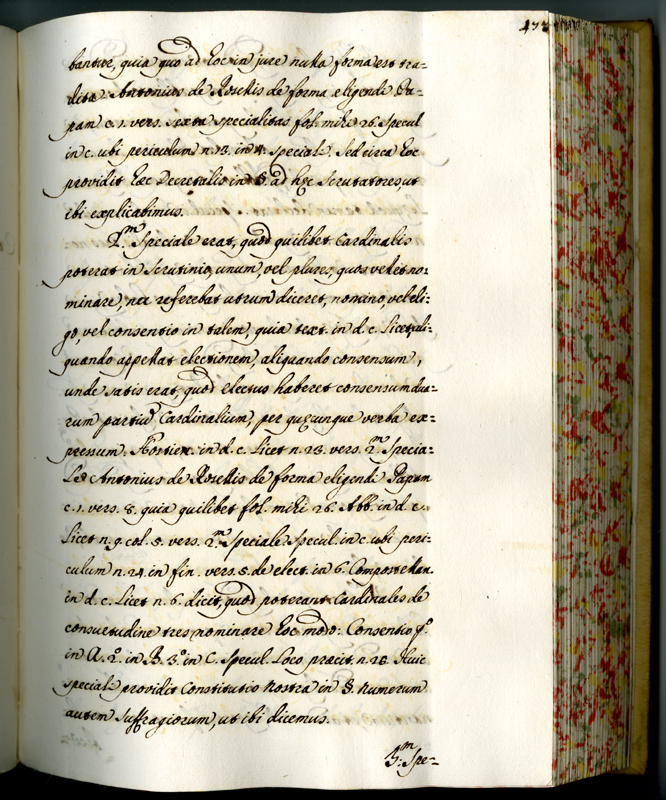 bantur, quia quo ad hoc in jure nulla forma est tra-
dita Antonius de Rosellis de forma eligendi Pa-
pam c. 1. vers. sexta specialitas fol. mihi 26. Specul
in c. ubi periculum n. 13. in 4. special. Sed circa hoc
providit hæc Decretalis in §. ad hęc Scrutatores, ut
ibi explicabimus.
2.m Speciale erat, quod quilibet Cardinalis
poterat in Scrutinio, unum, vel plures, quos vellet no-
minare, nec referebat utrum diceret, nomino, vel eli-
go, vel consentio in talem, quia text. in d. c. Licet, ali-
quando appellat electionem, aliquando consensum,
unde satis erat, quod electus haberet consensum dua-
rum partiũ Cardinalium, per quęcunque verba ex-
pressum. Hostien. in d. c. Licet n. 23. vers. 2.m Specia-
Le Antonius de Rosellis de forma eligendi Papam
c. 1. vers. 8. quia quilibet fol. mihi 26. Abb. in d. c.
Licet n. 9. col. 5. vers. 2.m Speciale Specul. in c. ubi peri-
culum n. 24. in fin. vers. 5. de elect. in 6. Compostellan.
in d. c. Licet n. 6. dicit, quod poterant Cardinales de
consuetudine tres nominare hoc modo: Consentio p.o
in A. 2.o in B. 3.o in C. Specul. Loco præcit. n. 28. Huic
speciali providit Constitutio Nostra in §. Numerum
autem Suffragiorum, ut ibi dicemus.
3.m Spe-